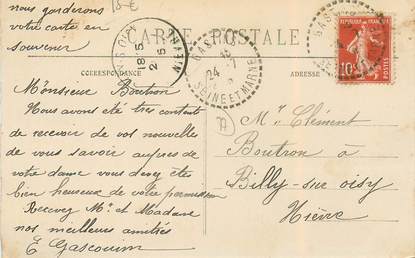 nous garderons
votre carte en
souvenir
18€
CARTE POSTALE
CORRESPONDANCE
ADRESSE
REPUBLIQUE FRANÇAISE
10c
POSTES
SEINE ET MARNE
24
18 5
2 5
Monsieur Boutron
Nous avons été tres contente
de recevoir de vos nouvelles
de vous savoir aupres de
votre dame vous devez etre
bien heureuse de votre permission
Recevez Mr et Madame
nos meilleurs amitiés
E Gascouin
Mr Clément
Boutron à
Billy-sur oisy
Nièvre